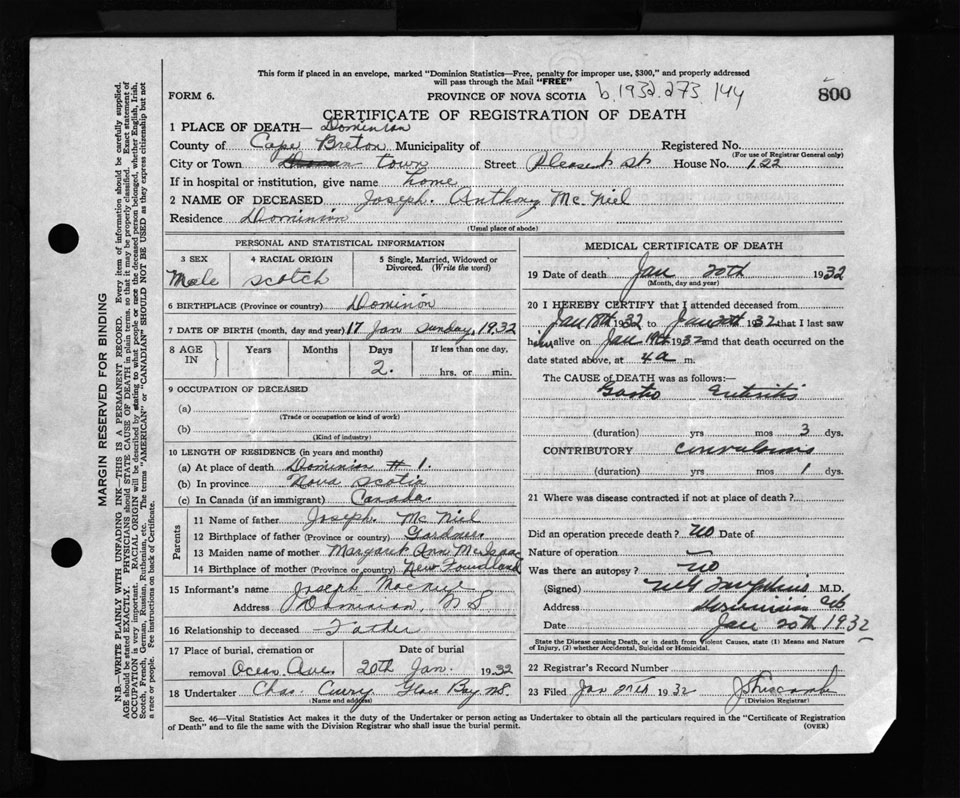 This form if placed in an envelope, marked "Dominion Statistics—Free, penalty for improper use, $300," and properly addressed
will pass through the Mail "FREE"
FORM 6.
PROVINCE OF NOVA SCOTIA b.1932.273.144
800
CERTIFICATE OF REGISTRATION OF DEATH
1 PLACE OF DEATH— Dominion
County of Cape Breton Municipality of Registered No.
(For use of Registrar General only)
City or Town town Street Pleasent St House No. 122
If in hospital or institution, give name home
2 NAME OF DECEASED Joseph. Anthony Mc Niel
Residence Dominion
(Usual place of abode)
PERSONAL AND STATISTICAL INFORMATION
3 SEX 4 RACIAL ORIGIN 5 Single, Married, Widowed or
Divorced. (Write the word)
Male Scotch
6 BIRTHPLACE (Province or country) Dominion
7 DATE OF BIRTH (month, day and year) 17 Jan Sunday, 1932
8 AGE IN Years Months Days If less than one day,
2. hrs. or min.
9 OCCUPATION OF DECEASED
(a)
(Trade or occupation or kind of work)
(b)
(Kind of industry)
10 LENGTH OF RESIDENCE (in years and months)
(a) At place of death Dominion # 1.
(b) In province Nova Scotia
(c) In Canada (if an immigrant) Canada
Parents
11 Name of father Joseph. Mc Niel
12 Birthplace of father (Province or country) Gardner
13 Maiden name of mother Margaret Ann McIsaac
14 Birthplace of mother (Province or country) New Foundland
15 Informant's name Joseph MacNeil
Address Dominion, N S
16 Relationship to deceased Father
17 Place of burial, cremation or Date of burial
removal Ocean Ave 20th Jan. 1932
18 Undertaker Chas. Curry Glace Bay N.S.
(Name and address)
MEDICAL CERTIFICATE OF DEATH
19 Date of death Jan 20th 1932
(Month, day and year)
20 I HEREBY CERTIFY that I attended deceased from
Jan 18th 1932 to Jan 20th 1932 that I last saw
him alive on Jan 19th 1932 and that death occurred on the
date stated above, at 4 a m.
The CAUSE of DEATH was as follows:—
Gastro Enteritis
(duration) yrs mos 3 dys.
CONTRIBUTORY Convulsions
(duration) yrs mos 1 dys.
21 Where was disease contracted if not at place of death?
Did an operation precede death? No Date of
Nature of operation
Was there an autopsy? No
(Signed) M.D.
Address Dominion CB
Date Jan 20th 1932
State the Disease causing Death, or in death from Violent Causes, state (1) Means and Nature
of Injury, (2) whether Accidental, Suicidal or Homicidal.
22 Registrar's Record Number
23 Filed Jan 1932
(Division Registrar)
Sec. 46—Vital Statistics Act makes it the duty of the Undertaker or person acting as Undertaker to obtain all the particulars required in the "Certificate of Registration
of Death" and to file the same with the Division Registrar who shall issue the burial permit. (OVER)
MARGIN RESERVED FOR BINDING
N.B.—WRITE PLAINLY WITH UNFADING INK—THIS IS A PERMANENT RECORD. Every item of information should be carefully supplied.
AGE should be stated EXACTLY. PHYSICIANS should STATE CAUSE OF DEATH in plain terms, so that it may be properly classified. Exact statement of
OCCUPATION is very important. RACIAL ORIGIN will be described by stating to what people or race the deceased person belonged, whether English, Irish,
Scotch, French, German, Russian, Ruthenian, etc. The terms "AMERICAN" or "CANADIAN" SHOULD NOT BE USED as they express citizenship but not
a race or people. See instructions on back of Certificate.